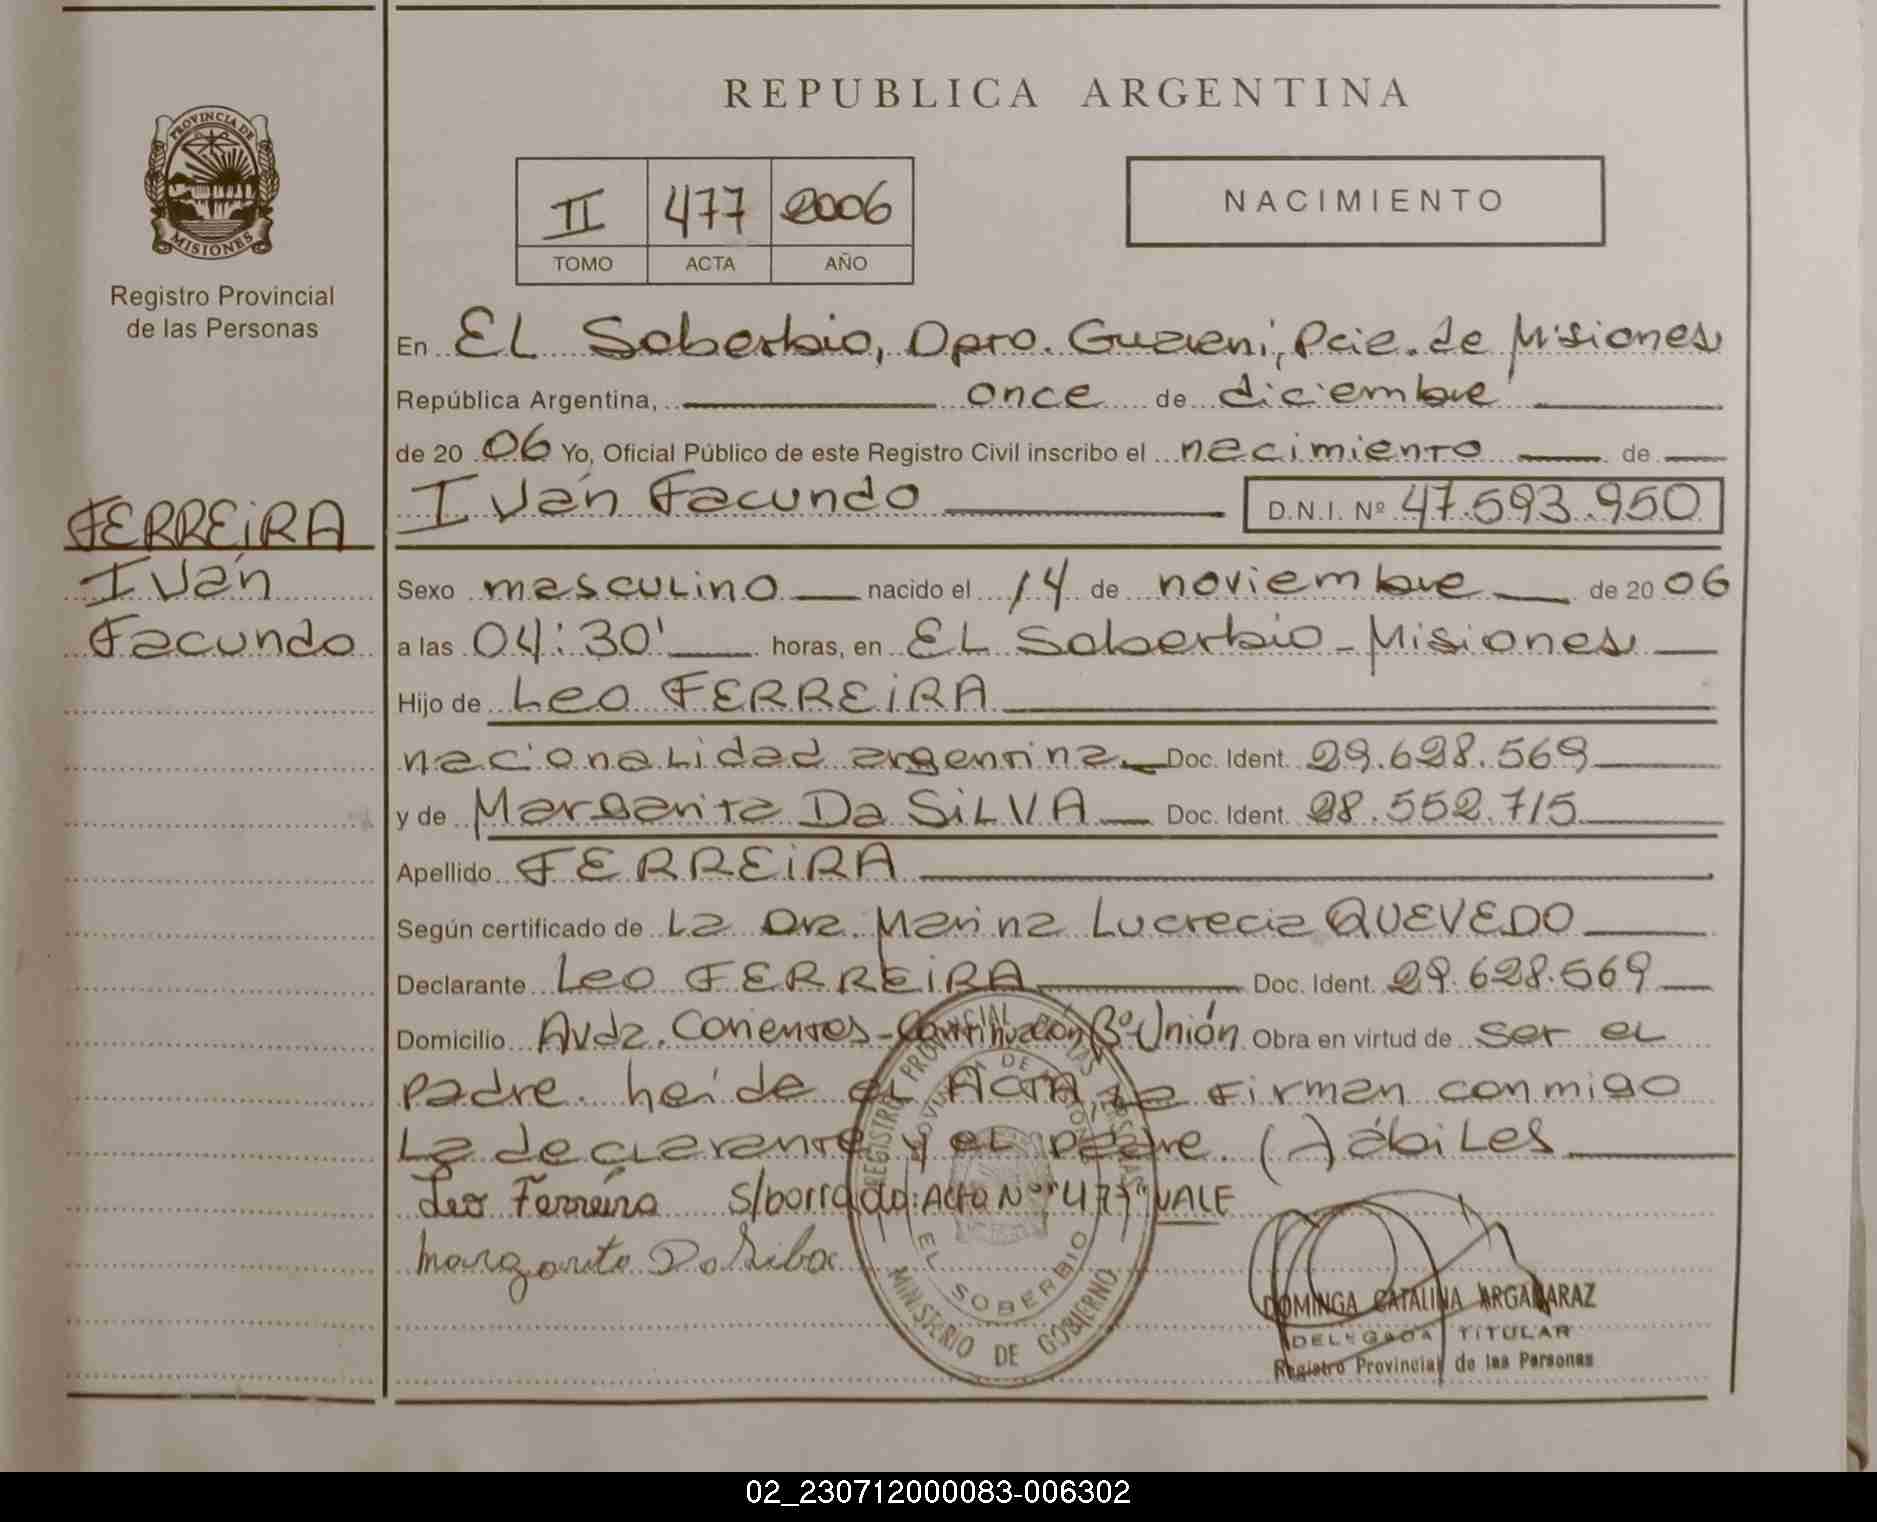 REPUBLICA ARGENTINA
PROVINCIA DE
MISIONES
Registro Provincial
de las Personas
II 477 2006
TOMO ACTA AÑO
NACIMIENTO
En El Soberbio, Dpto. Guarani, Pcia. de Misiones
República Argentina, once de diciembre
de 20 06 Yo, Oficial Público de este Registro Civil inscribo el nacimiento de
Iván Facundo D.N.I. Nº 47.593.950
FERREIRA
Iván
Facundo
Sexo masculino nacido el 14 de noviembre de 20 06
a las 04:30' horas, en El Soberbio - Misiones
Hijo de Leo FERREIRA
nacionalidad argentina Doc. Ident. 29.628.569
y de Margarita Da SILVA Doc. Ident. 28.552.715
Apellido FERREIRA
Según certificado de La Dra. Marina Lucrecia QUEVEDO
Declarante Leo FERREIRA Doc. Ident. 29.628.569
Domicilio Avda. Corrientes - Continuación Bº Unión Obra en virtud de ser el
padre. leída el ACTA, la firman conmigo
la declarante y el padre. (-) ábiles
Leo Ferreira S/borrado: Acta Nº "477" VALE
Margarita Da Silva
REGISTRO PROVINCIAL DE LAS PERSONAS
PROVINCIA DE MISIONES
EL SOBERBIO
MINISTERIO DE GOBIERNO
DOMINGA CATALINA ARGAÑARAZ
DELEGADA TITULAR
Registro Provincial de las Personas
02_230712000083-006302